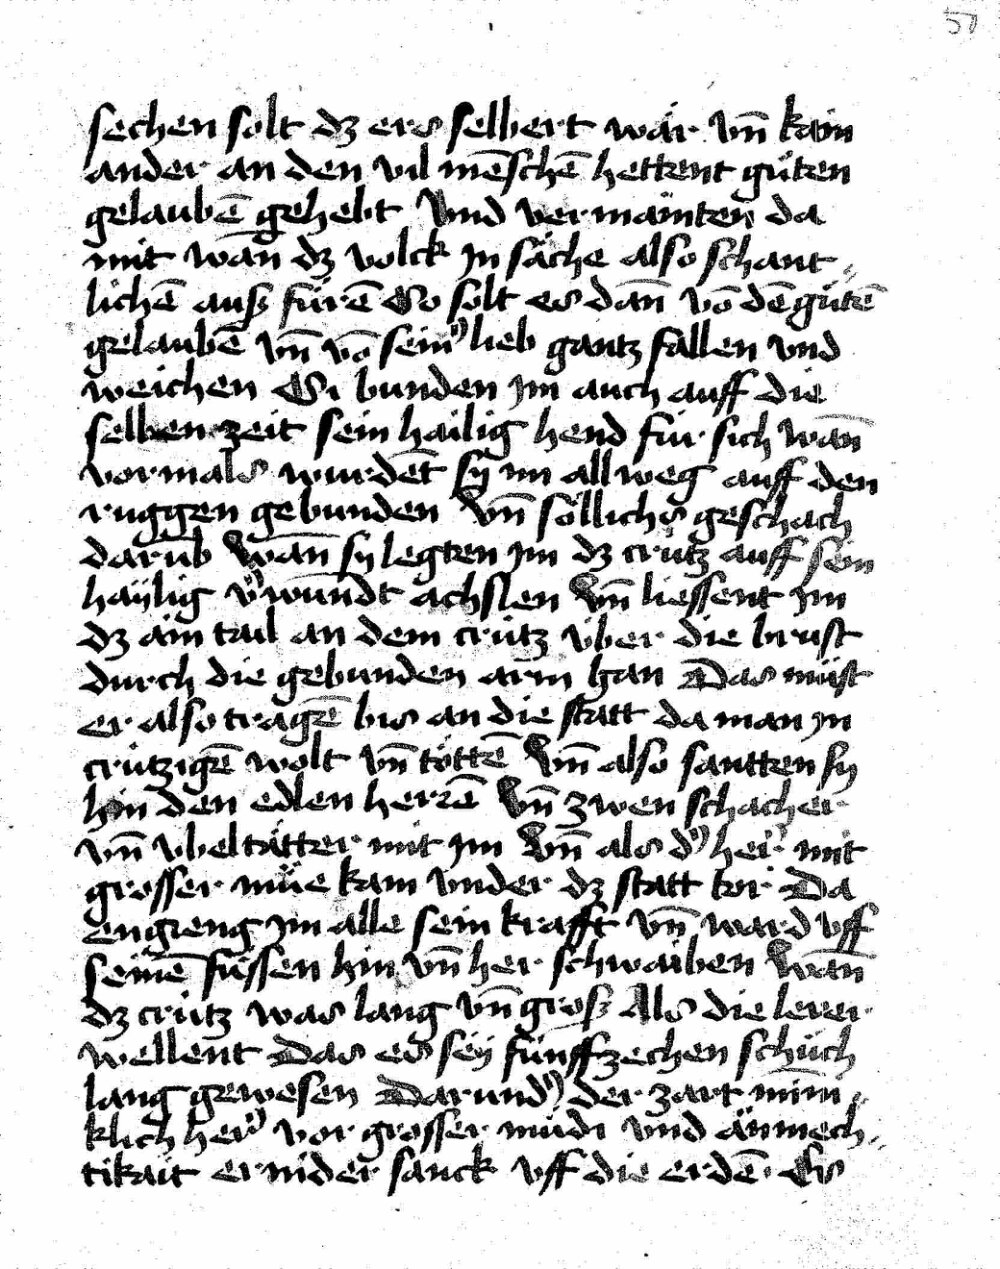 57
sechen solt dz ers selbert wär vn̄ kain
ander an den vil mēschē hettent gůten
gelaubē gehebt Vnd vermainten da
mit wan̄ dz volck jn säche also schant
lichē auß fürē So solt es dan̄ vō dē gůtē
gelaubē vn̄ vō seinʼ lieb gantz fallen vnd
weichen Si bunden jm auch auff die
selben zeit sein hailig hend für sich wan̄
vormals wurdēt sy im allweg auff den
ruggen gebunden Vn̄ söllichs geschach
darūb Wan̄ sy legten jm dz crütz auff sein
haÿlig vʼwundt achslen Vn̄ liessent jm
dz ain tail an dem crütz über die brust
durch die gebunden arm̄ han Das müst
er also tragē bis an die statt da man jn
crützigē wolt vn̄ töttē Vn̄ also santten sy
hin den edlen herrē Vn̄ zwen schacher
vn̄ vbeltätter mit jm Vn̄ als dʼ herʼ mit
grosser müe kam vnder dz statt tor Da
engieng jm alle sein krafft vn̄ ward vff
seinē füssen hin vn̄ her schwaiben Wan̄
dz crütz was lang vn̄ groß Als die lerer
wellent Das es seÿ fünffzechen schůch
lang gewesen Darundʼ der zart min̄i
klich herʼ vor grosser müdi vnd änmech
tikait er nider sanck vff die erdē Es